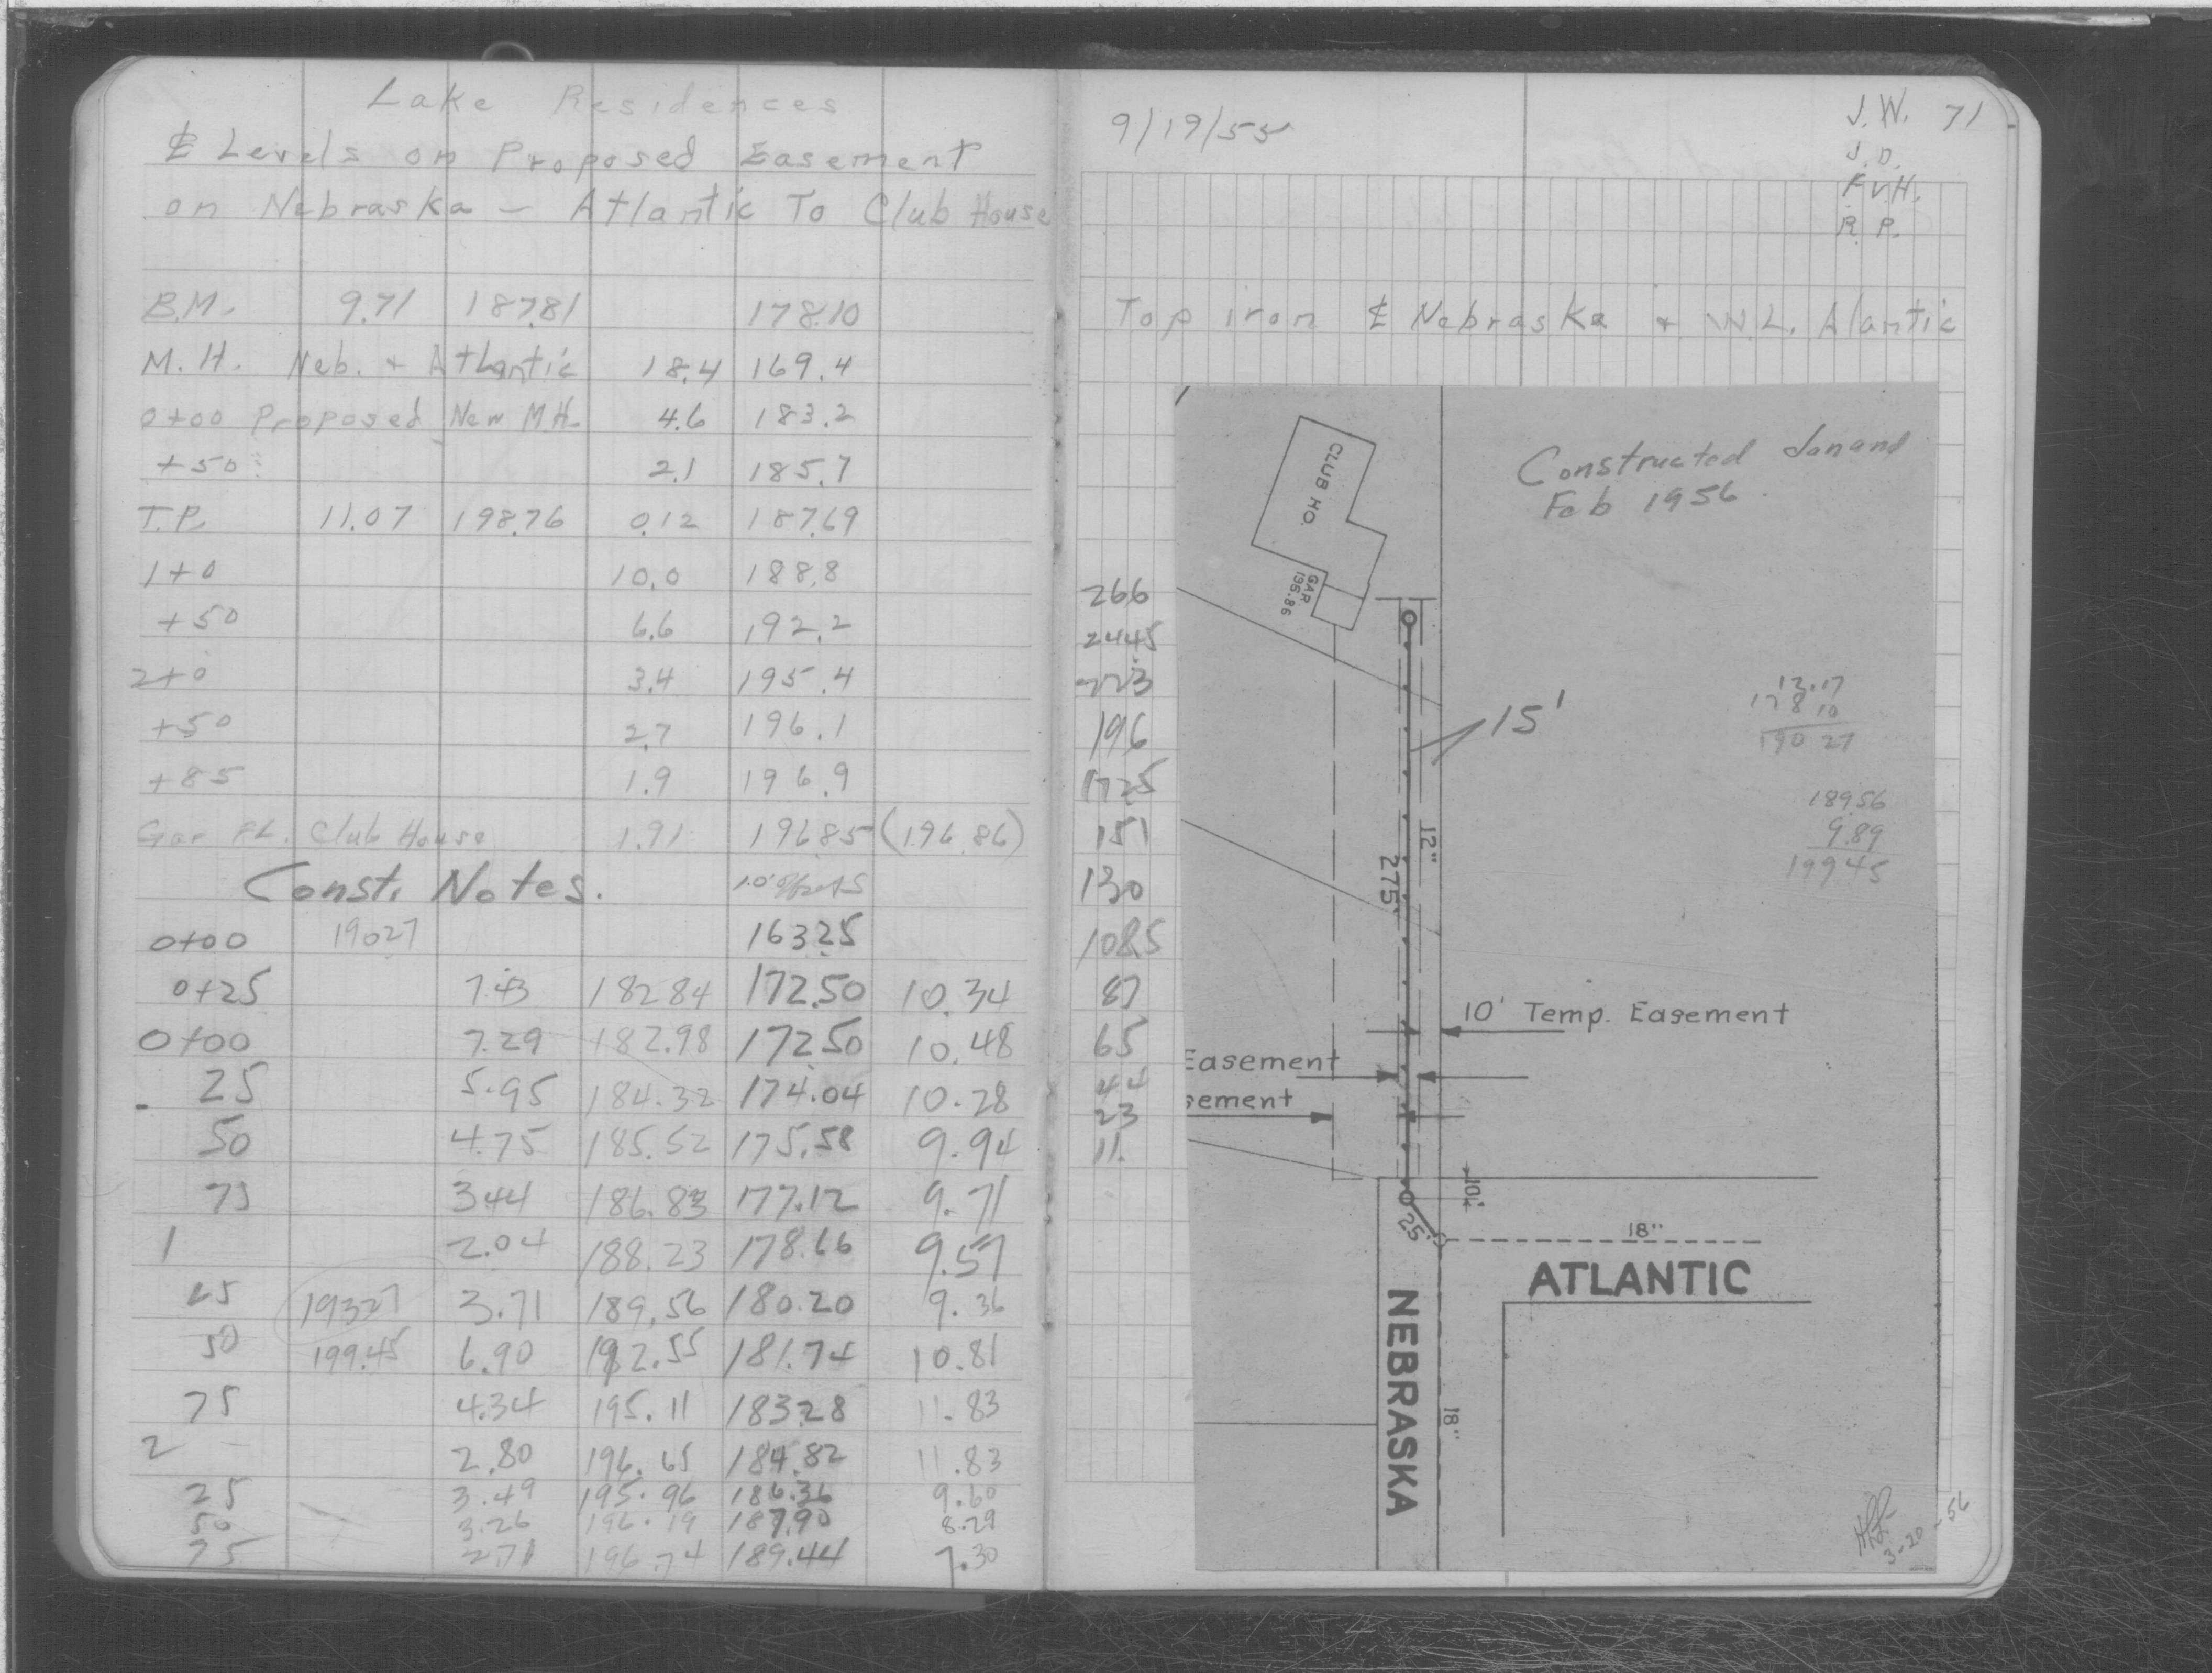 Lake Residences
℄ Levels on Proposed Easement
on Nebraska - Atlantic To Club House
B.M. 9.71 187.81 178.10
M.H. Neb. + Atlantic 18.4 169.4
0+00 Proposed New M.H. 4.6 183.2
+50 2.1 185.7
T.P. 11.07 198.76 0.12 187.69
1+0 10.0 188.8
+50 6.6 192.2
2+0 3.4 195.4
+50 2.7 196.1
+85 1.9 196.9
Gar FL. Club House 1.91 196.85 (196.86)
Const. Notes. 10' offsets
0+00 190.27 163.25
0+25 7.43 182.84 172.50 10.34
0+00 7.29 182.98 172.50 10.48
25 5.95 184.32 174.04 10.28
50 4.75 185.52 175.58 9.94
75 3.44 186.83 177.12 9.71
1 2.04 188.23 178.66 9.57
25 193.27 3.71 189.56 180.20 9.36
50 199.45 6.90 192.55 181.74 10.81
75 4.34 195.11 183.28 11.83
2 - 2.80 196.65 184.82 11.83
25 3.49 195.96 186.36 9.60
50 3.26 196.19 187.90 8.29
75 2.71 196.74 189.44 7.30
9/19/55
J.W. 71
J.D.
F.V.H.
R.P.
Top iron ℄ Nebraska + W.L. Alantic
Constructed Jan and
Feb 1956.
CLUB HO.
GAR.
195.86
266
244.5
223
196
172.5
151
130
108.5
87
65
44
23
11.
15'
12.17
178 10
190 27
189.56
9.89
199.45
12"
275'
10' Temp. Easement
Easement
sement
10'
25'
18"
ATLANTIC
NEBRASKA
18"
3-20-56